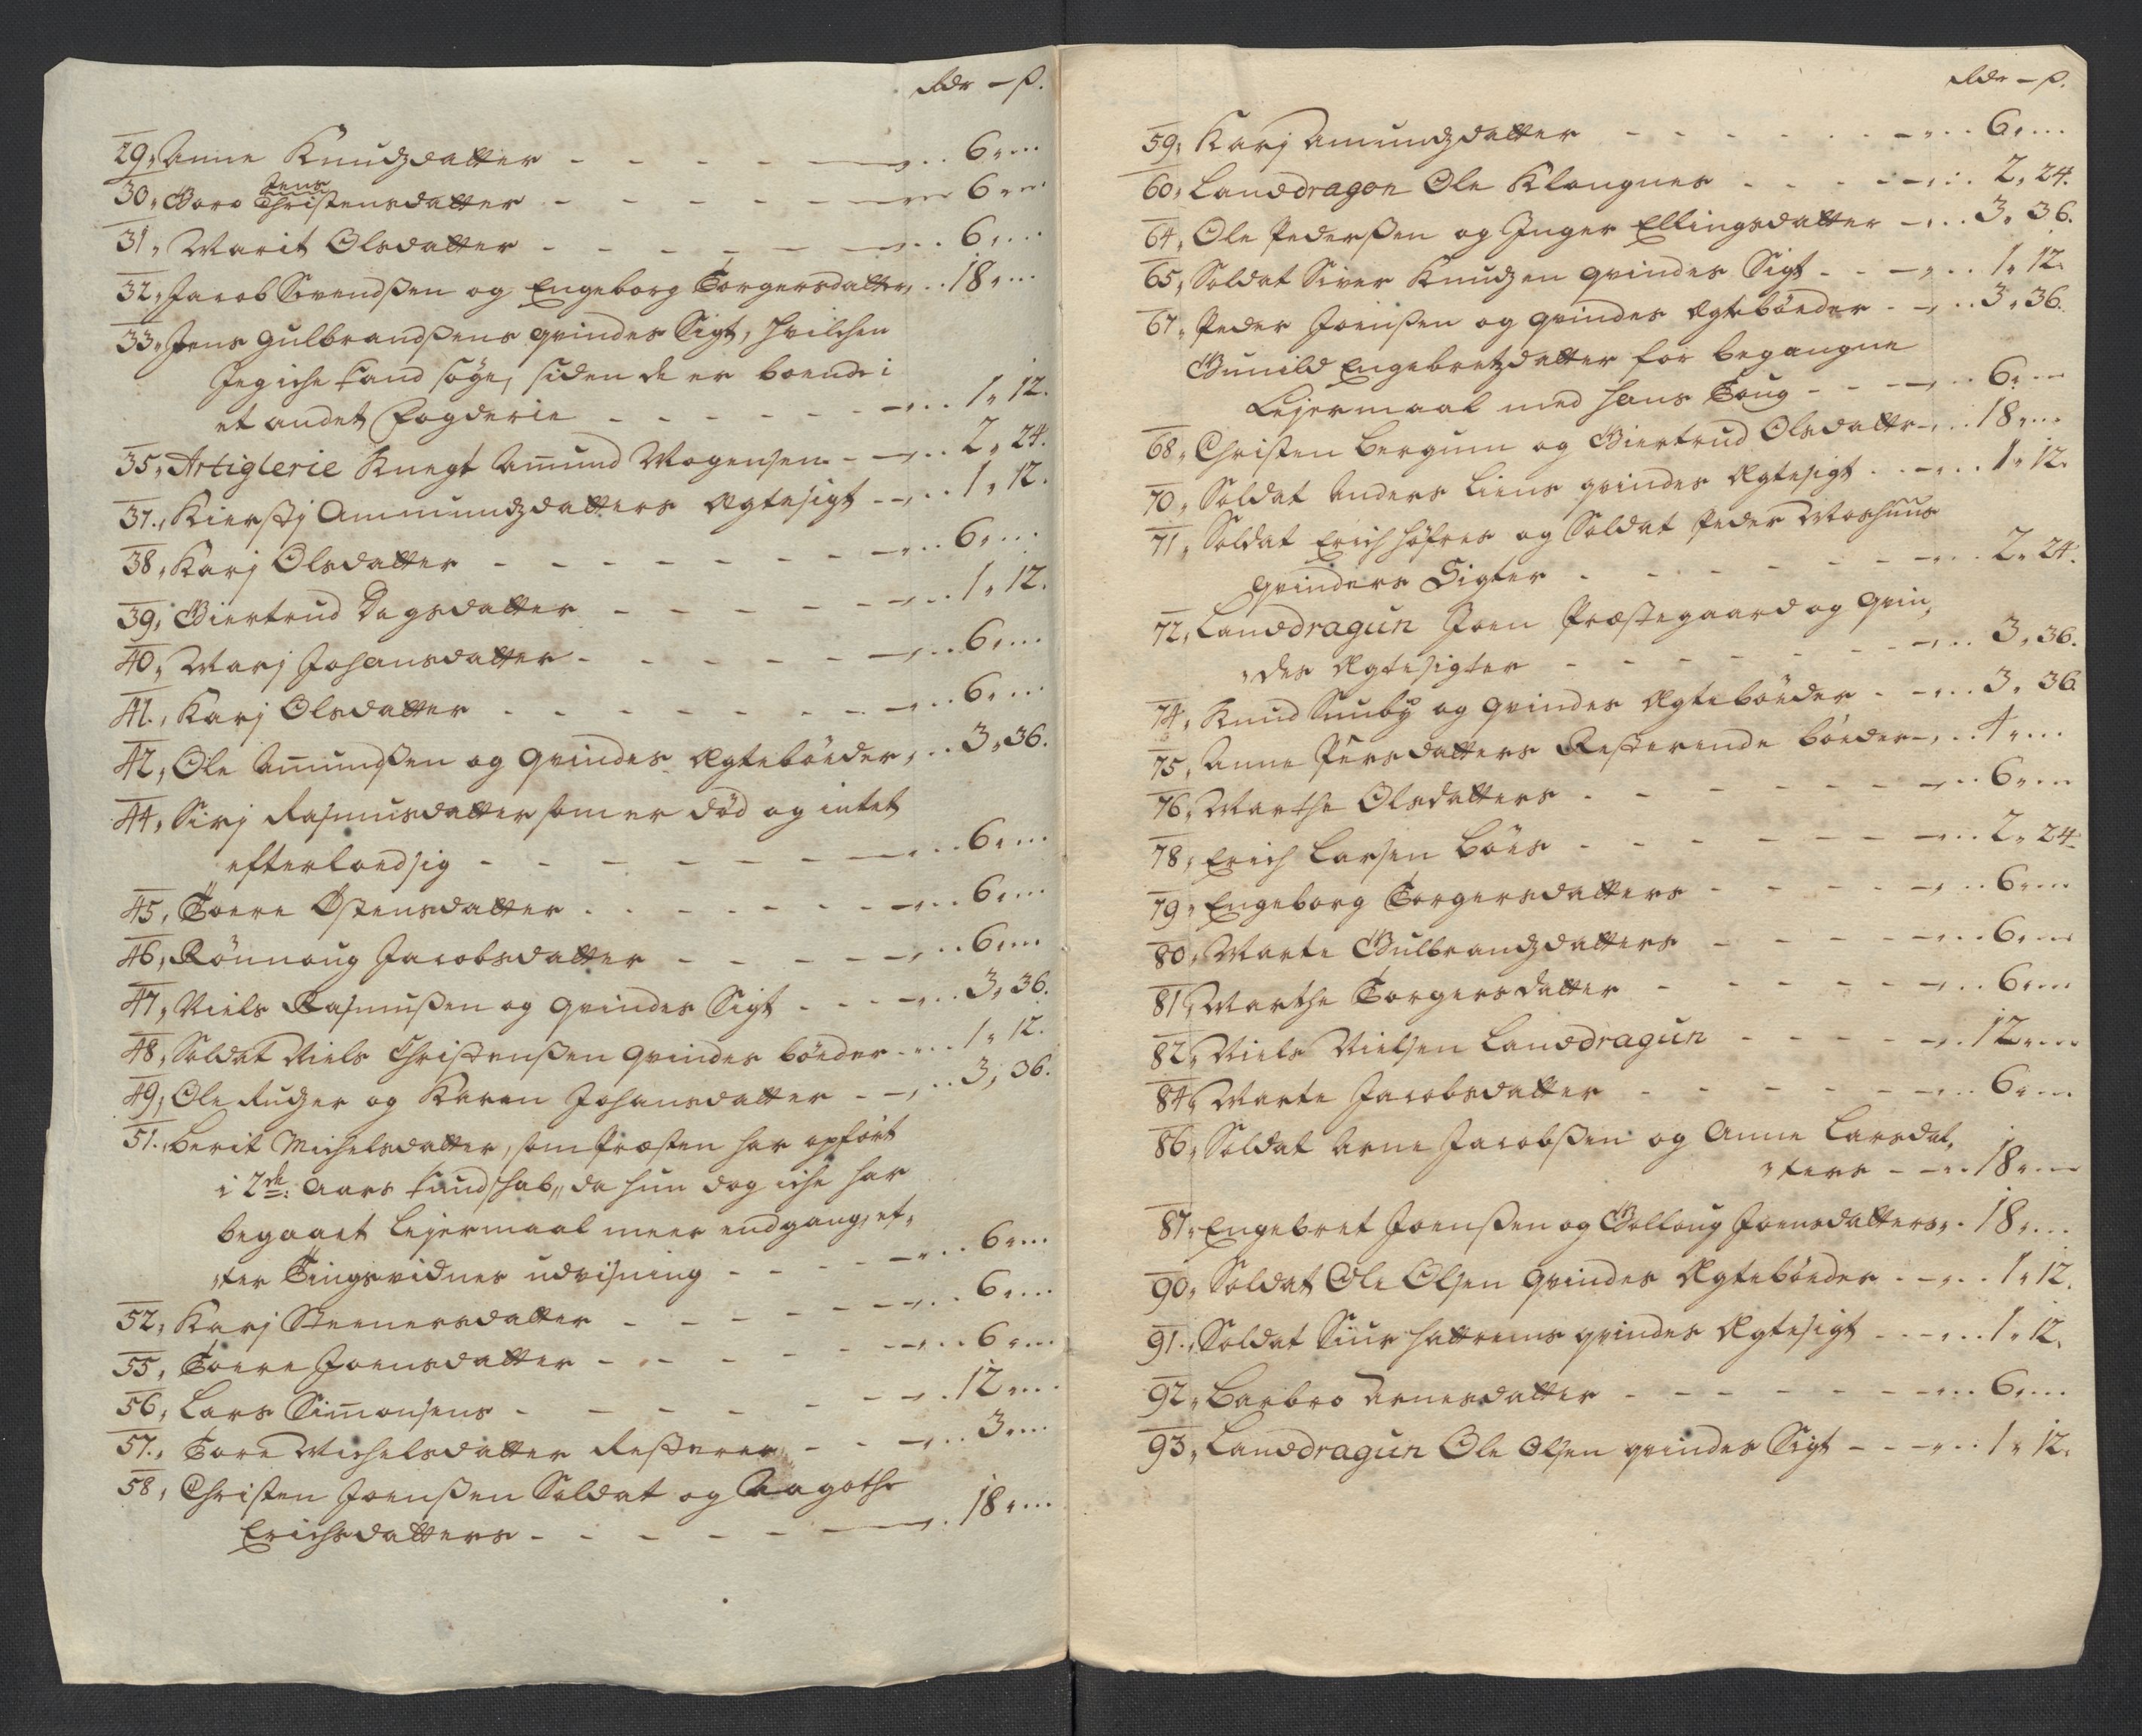 Rdr - ß.
29, Anne Knudzdatter - - - - - 6 "
30, Goro Jens Christensdatter - - - - - 6 "
31, Marit Olsdatter - - - - - 6 "
32, Jacob Svendßen og Engeborg Torgersdatter, 18 "
33, Jens Gulbrandßens qvindes Sigt, hvilchen
Jeg iche kand søge, siden de er boende i
et andet Fogderie - - - - - 1 " 12.
35, Artiglerie Knegt Amund Mogensen - - 2 " 24.
37., Kierstj Ammundzdatters Ægtesigt - - 1 " 12.
38, Karj Olsdatter - - - - - 6 "
39, Giertrud Dagsdatter - - - - - 1 " 12.
40, Marj Johansdatter - - - - - 6 "
41., Karj Olsdatter - - - - - 6 "
42, Ole Amundßen og qvindes Ægtebøeder, 3 " 36.
44, Sirj Rasmusdatter som er død og intet
efterloed sig - - - - - 6 "
45, Toere Østensdatter - - - - - 6 "
46, Rønnoug Jacobsdatter - - - - - 6 "
47, Niels Rasmußen og qvindes Sigt - - - 3 " 36.
48, Soldat Niels Christenßen qvindes bøeder - 1 " 12.
49, Ole Rudzer og Karen Johansdatter - - 3 " 36.
51., Berit Michelsdatter, som Præsten har opført
i 2de: Aars Lands hab, da hun dog iche har
begaaet Lejermaal meer end gang, ef,
"ter Tingsvidnes udvisning - - - - 6 "
52, Karj Steenersdatter - - - - - 6 "
55, Toere Joensdatter - - - - - 6 "
56, Lars Simonsens - - - - - 12 "
57., Tore Michelsdatter Resterer - - - 3 "
58, Christen Joenßen Soldat og Aagothe
Erichsdatters - - - - - 18 "
Rdr - ß.
59, Karj Amundzdatter - - - - - 6 "
60, Landdragon Ole Klongnes - - - - 2 " 24.
64, Ole Pederßen og Inger Ellingsdatter - 3 " 36.
65, Soldat Siver Knudzen qvindes Sigt - - - 1 " 12.
67, Peder Joenßen og qvindes Ægtebøeder - - 3 " 36.
Gunild Engebretzdatter for begangne
Lejermaal med Hans Toug - - - 6 "
68, Christen Bergum og Giertrud Olsdattr - 18 "
70, Soldat Anders Liens qvindes Ægtesigt - - 1 " 12.
71, Soldat Erich Høfres og Soldat Peder Moshuus
qvinders Sigter - - - - - 2 " 24.
72, Landdragun Joen Præstegaard og qvin,
"des Ægtesigter - - - - - 3 " 36.
74, Knud Suuby og qvindes Ægtebøeder - - 3 " 36.
75, Anne Persdatters Resterende bøeder - 4 "
76, Marthe Olsdatters - - - - - 6 "
78, Erich Larsen Bøes - - - - - 2 " 24.
79, Engeborg Torgersdatters - - - - 6 "
80, Marte Gulbrandzdatters - - - - 6 "
81, Marthe Torgersdatter - - - - - 6 "
82, Niels Nielsen Landdragun - - - - 12 "
84, Marte Jacobsdatter - - - - - 6 "
86, Soldat Arne Jacobßen og Anne Larsdat,
"ters - - 18 "
87, Engebret Joenßen og Golloug Joensdatters, 18 "
90, Soldat Ole Olsen qvindes Ægtebøeder - - 1 " 12.
91., Soldat Siur Hattrems qvindes Ægtesigt - - 1 " 12.
92, Barbro Arnesdatter - - - - - 6 "
93, Landdragun Ole Olsen qvindes Sigt - - - 1 " 12.